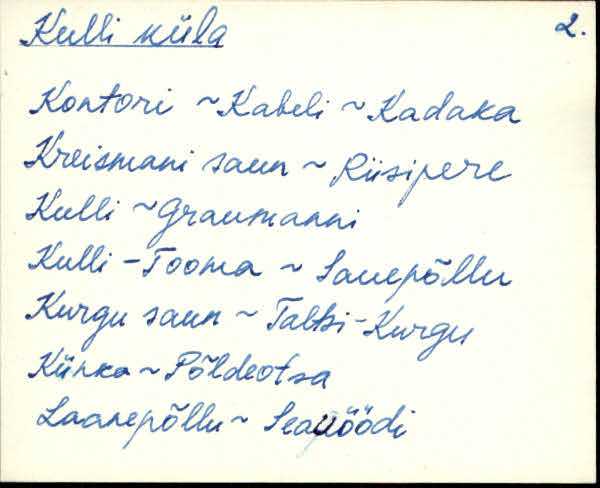 Kulli küla 2.
Kontori ~ Kabeli ~ Kadaka
Kreismani saun ~ Riisipere
Kulli ~ Graumanni
Kulli-Tooma ~ Sauepõllu
Kurgu saun ~ Taltsi-Kurgu
Künka ~ Põldeotsa
Laanepõllu ~